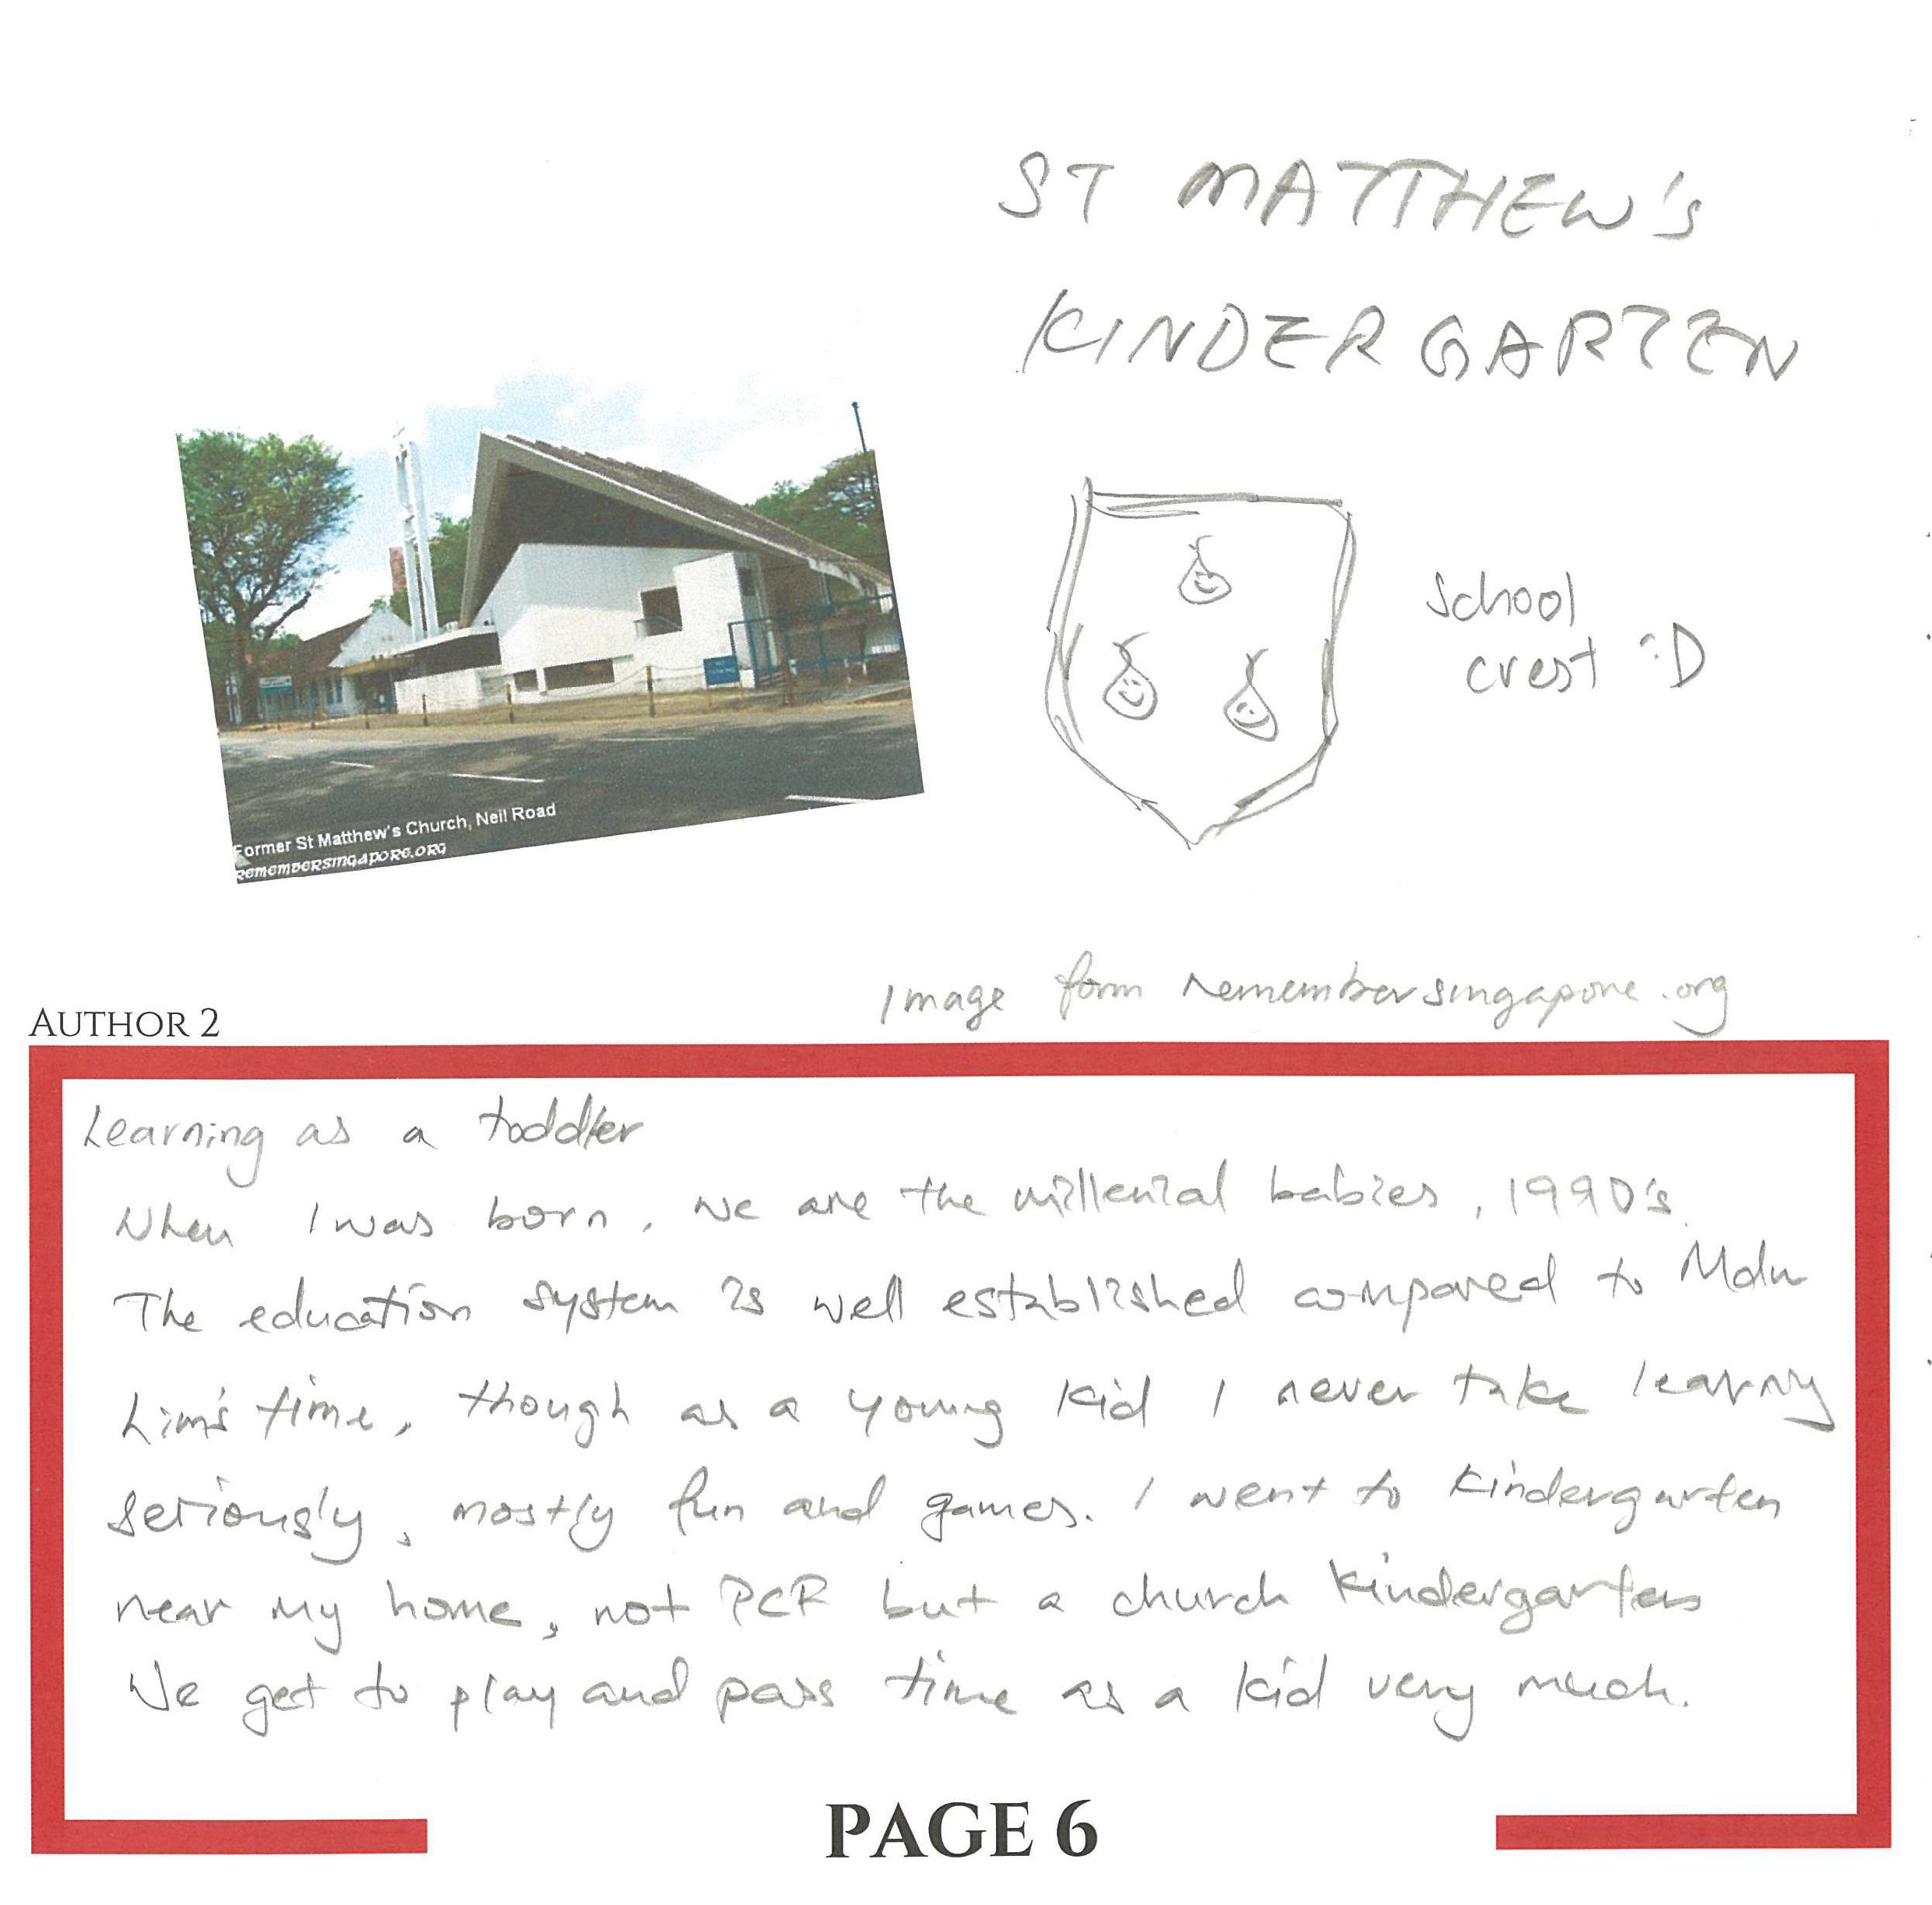 ST MATTHEW's
KINDERGARTEN
School
crest :D
Former St Matthew's Church, Neil Road
REMEMBERSINGAPORE.ORG
Image form remembersingapore.org
AUTHOR 2
Learning as a toddler
When I was born, we are the millenial babies, 1990's.
The education system is well established compared to Mdm
Lim's time, though as a young kid I never take learning
seriously, mostly fun and games. I went to kindergarten
near my home, not PCF but a church kindergarten
We get to play and pass time as a kid very much.
PAGE 6